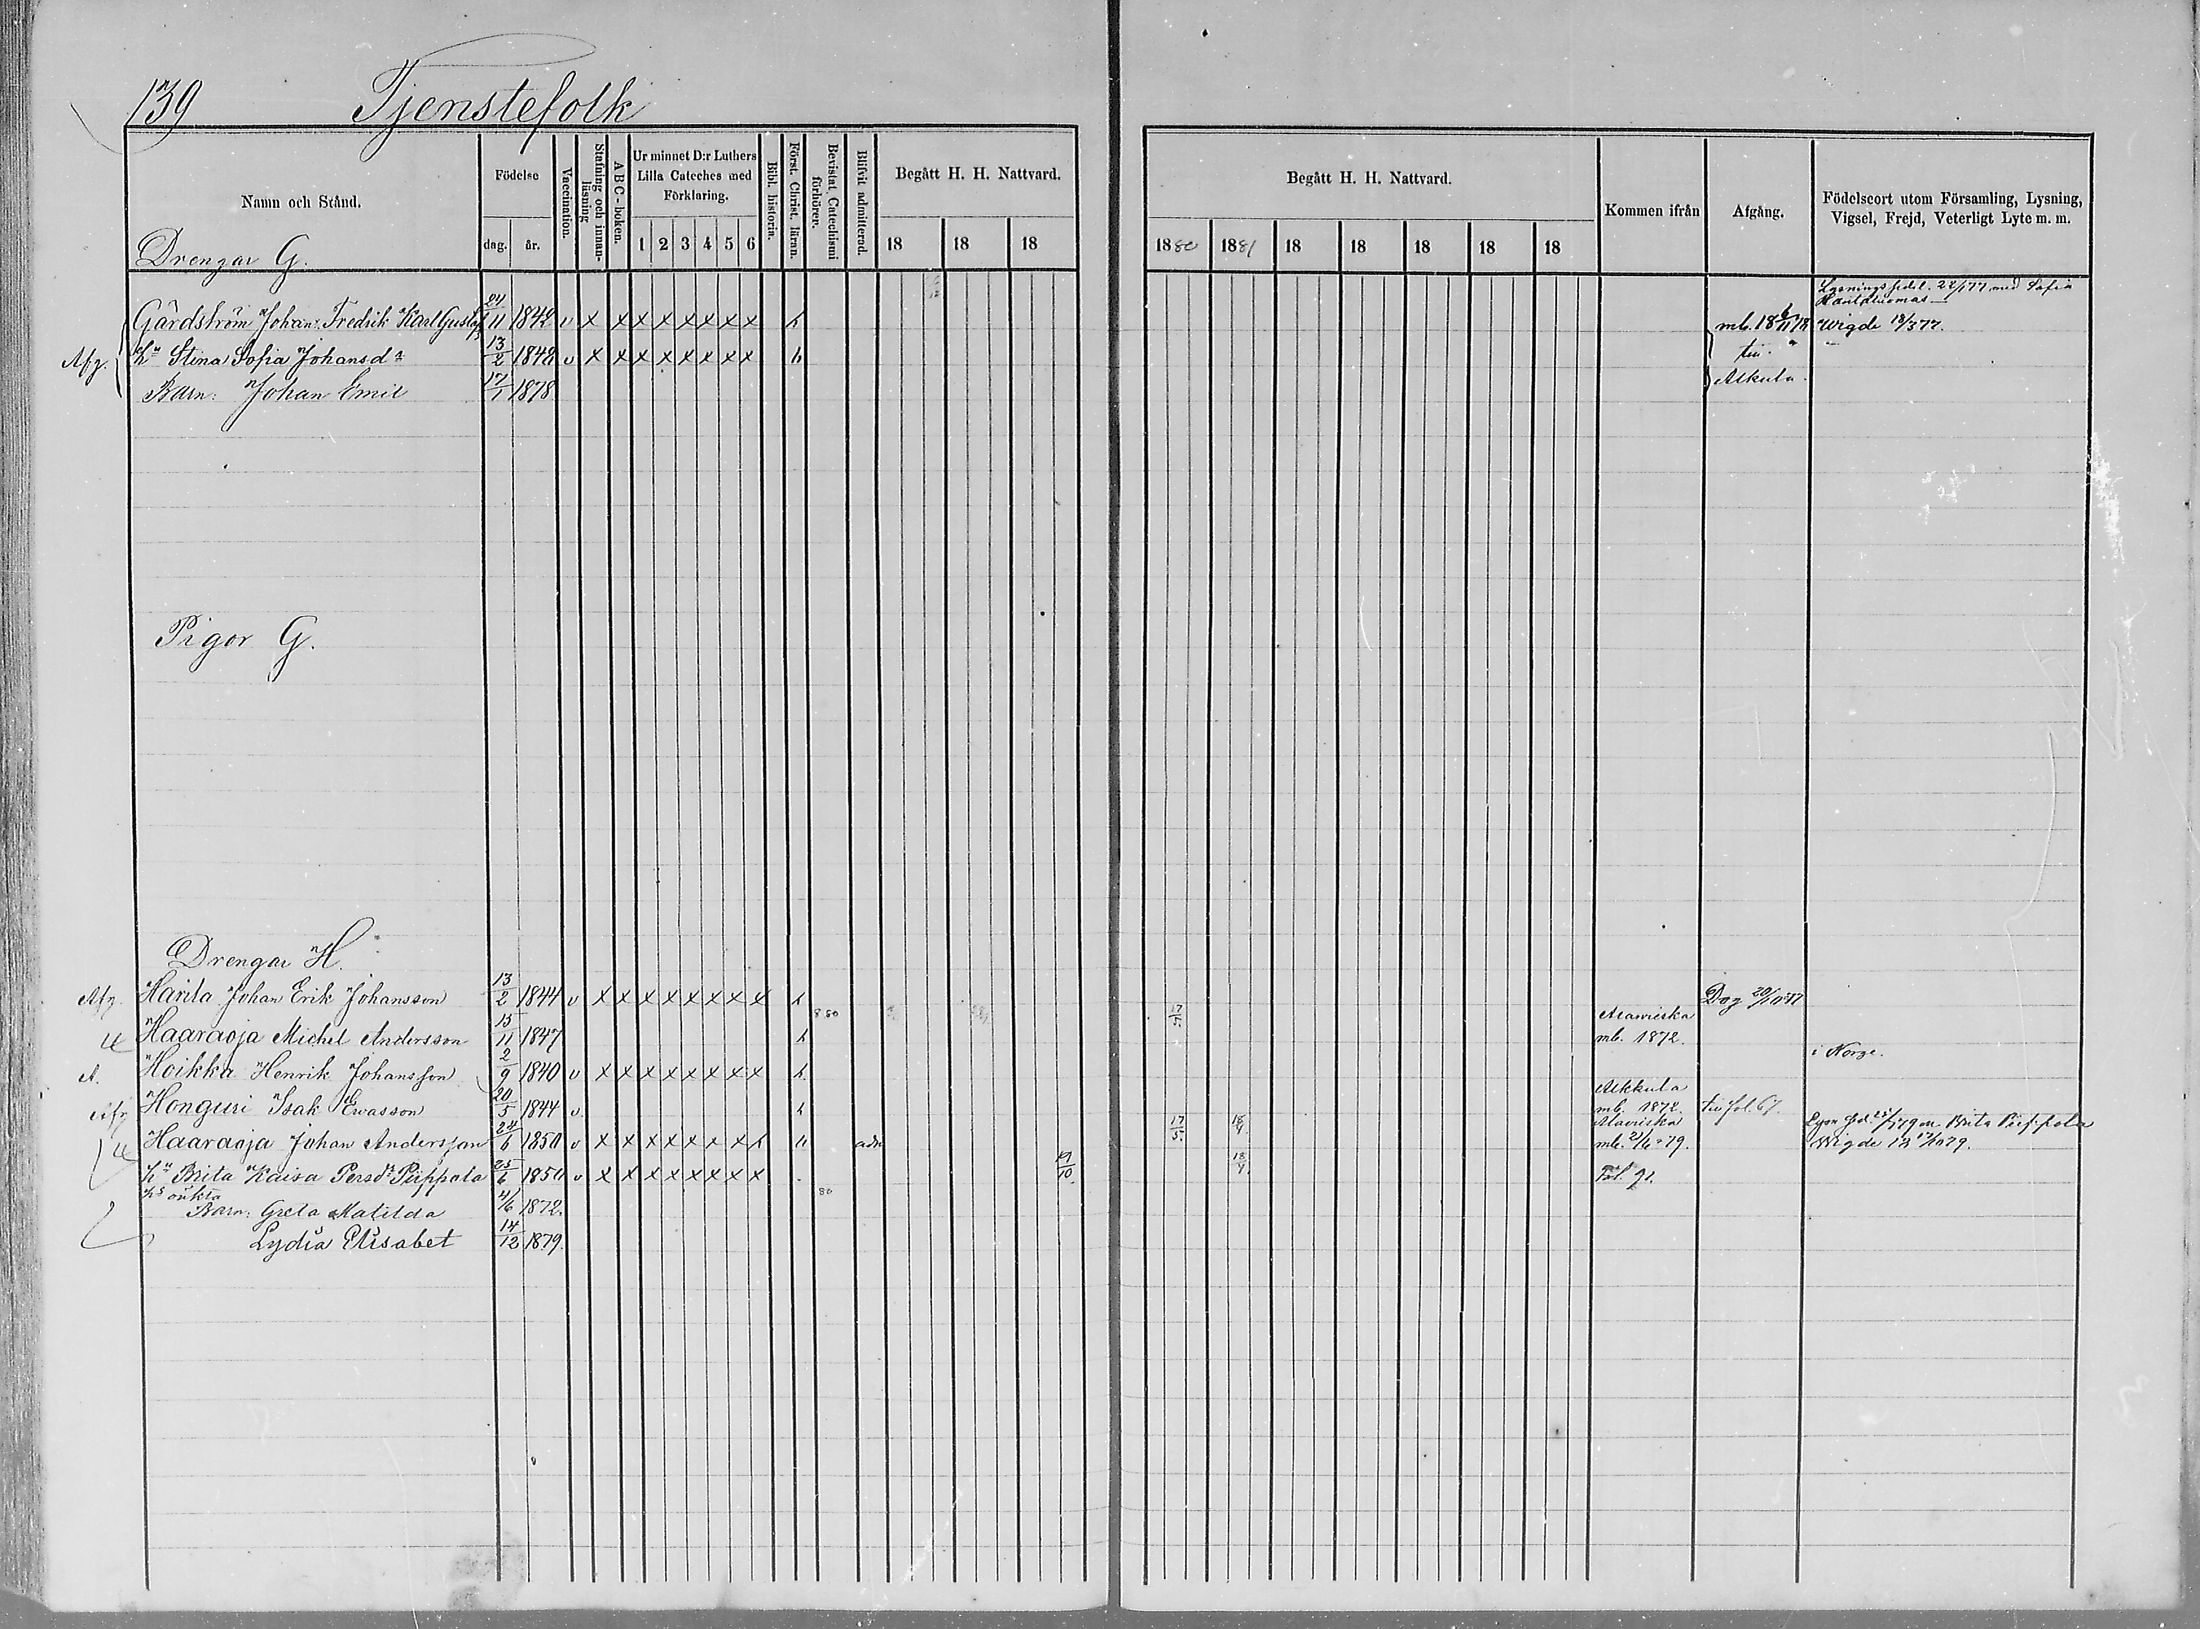 139 Tjenstefolk
Namn och Stånd.
Födelse
dag. år.
Vaccination.
Stafning och innanläsning
ABC-boken.
Ur minnet D:r Luthers Lilla Cateches med Förklaring.
1 2 3 4 5 6
Bibl. historia.
Först. Christ. läran.
Bevistat Catechismi förhörer.
Blifvit admitterad.
Begått H. H. Nattvard.
18 18 18
Begått H. H. Nattvard.
1880 1881 18 18 18 18 18
Kommen ifrån
Afgång.
Födelseort utom Församling, Lysning, Vigsel, Frejd, Veterligt Lyte m. m.
Drengar G.
Lysningssedel 22/1 77 med Sofia
Gårdström Johan Fredrik Karl Gustafs 24/11 1842 v x x x x x x x x h mb. 18 6/11 78 Wigde 18/3 77.
Afg. h:u Stina Sofia Johansd:r 13/2 1848 v x x x x x x x x h till "
Barn: Johan Emil 17/1 1878 Alkula.
Pigor G.
Drengar H.
Afg. Harila Johan Erik Johansson 13/2 1844 v x x x x x x x x h Dog 20/10 77
Haaraoja Michel Andersson 15/11 1847 h 8 80 17/5. Alavieska mb. 1872.
A. Hoikka Henrik Johansson 2/9 1840 v x x x x x x x x h i Norge.
Afg Honguri Isak Ewasson 20/5 1844 v h Alkkula mb. 1872. till fol. 67.
Haaraoja Johan Andersson 24/6 1850 v x x x x x x x h adm 17/5. 18/9 Alavieska mb. 2/6 79. Lysn sed. 25/1 79 m Brita Piippola Wigde
h:u Brita Kaisa Persd:r Piippola 25/6 1850 v x x x x x x x x 19/10. 18/9. Fol. 91.
h:s oäkta
Barn: Greta Matilda 4/6 1872. 80
Lydia Elisabet 14/12 1879.